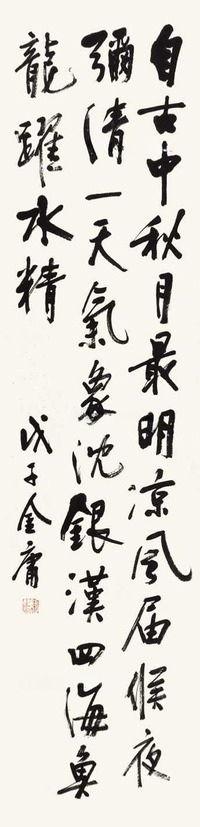 自古中秋月最明凉風届候夜
彌清一天氣象沈銀漢四海魚
龍躍水精
戊子金庸